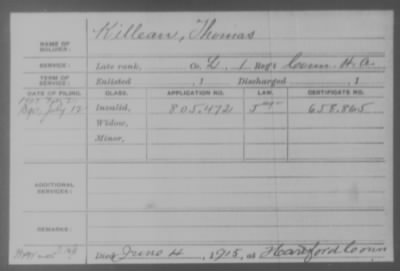 NAME OF SOLDIER: Killean, Thomas
SERVICE: Late rank, Co. L, 1 Reg't Conn. H. A.
TERM OF SERVICE: Enlisted , 1 Discharged , 1
DATE OF FILING. CLASS. APPLICATION NO. LAW. CERTIFICATE NO.
July 12 Invalid, 805,472 658.865
Widow,
Minor,
ADDITIONAL SERVICES:
REMARKS:
Died June 4, 1915, at Hartford Conn